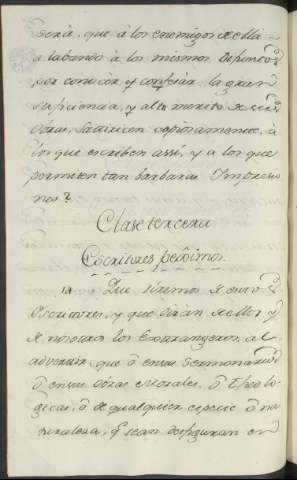 será, que à los enemigos de ella
alabando à los mismos difuntos
por conocér, y confesár la gran
suficiencia, y alto merito de sus
obras, satiricen copiosamente, à
los que escriben assi, y a los que
permiten tan barbaras Impresio
nes?
Clase tercera
Escritores pesimos.
Que diremos de estos
Escritores, y que dirán de ellos y
de nosotros los Extrangeros, al
advertir, que ò en sus Sermonarios
ò en sus obras Morales, ò Theolo
gicas, ò de qualquier especie ò na
turaleza, q.e sean desfiguran en